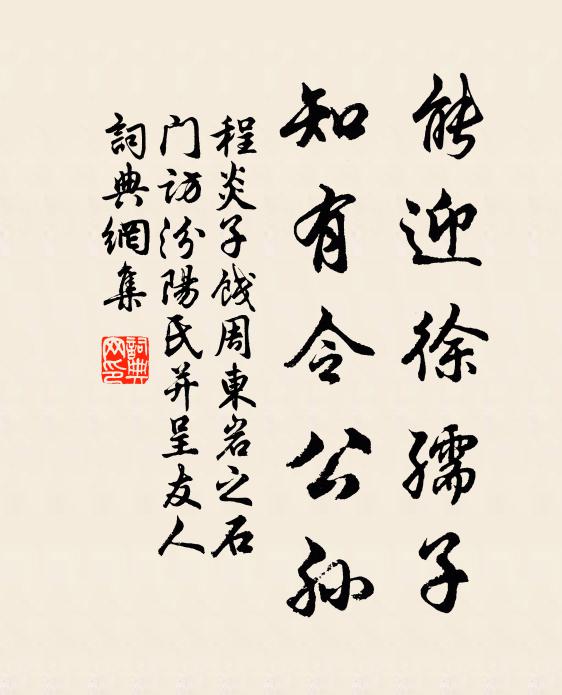 能迎徐孺子
知有令公孙
程炎子饯周東岩之石
门访汾陽氏并呈友人
詞典網集
詞典网印